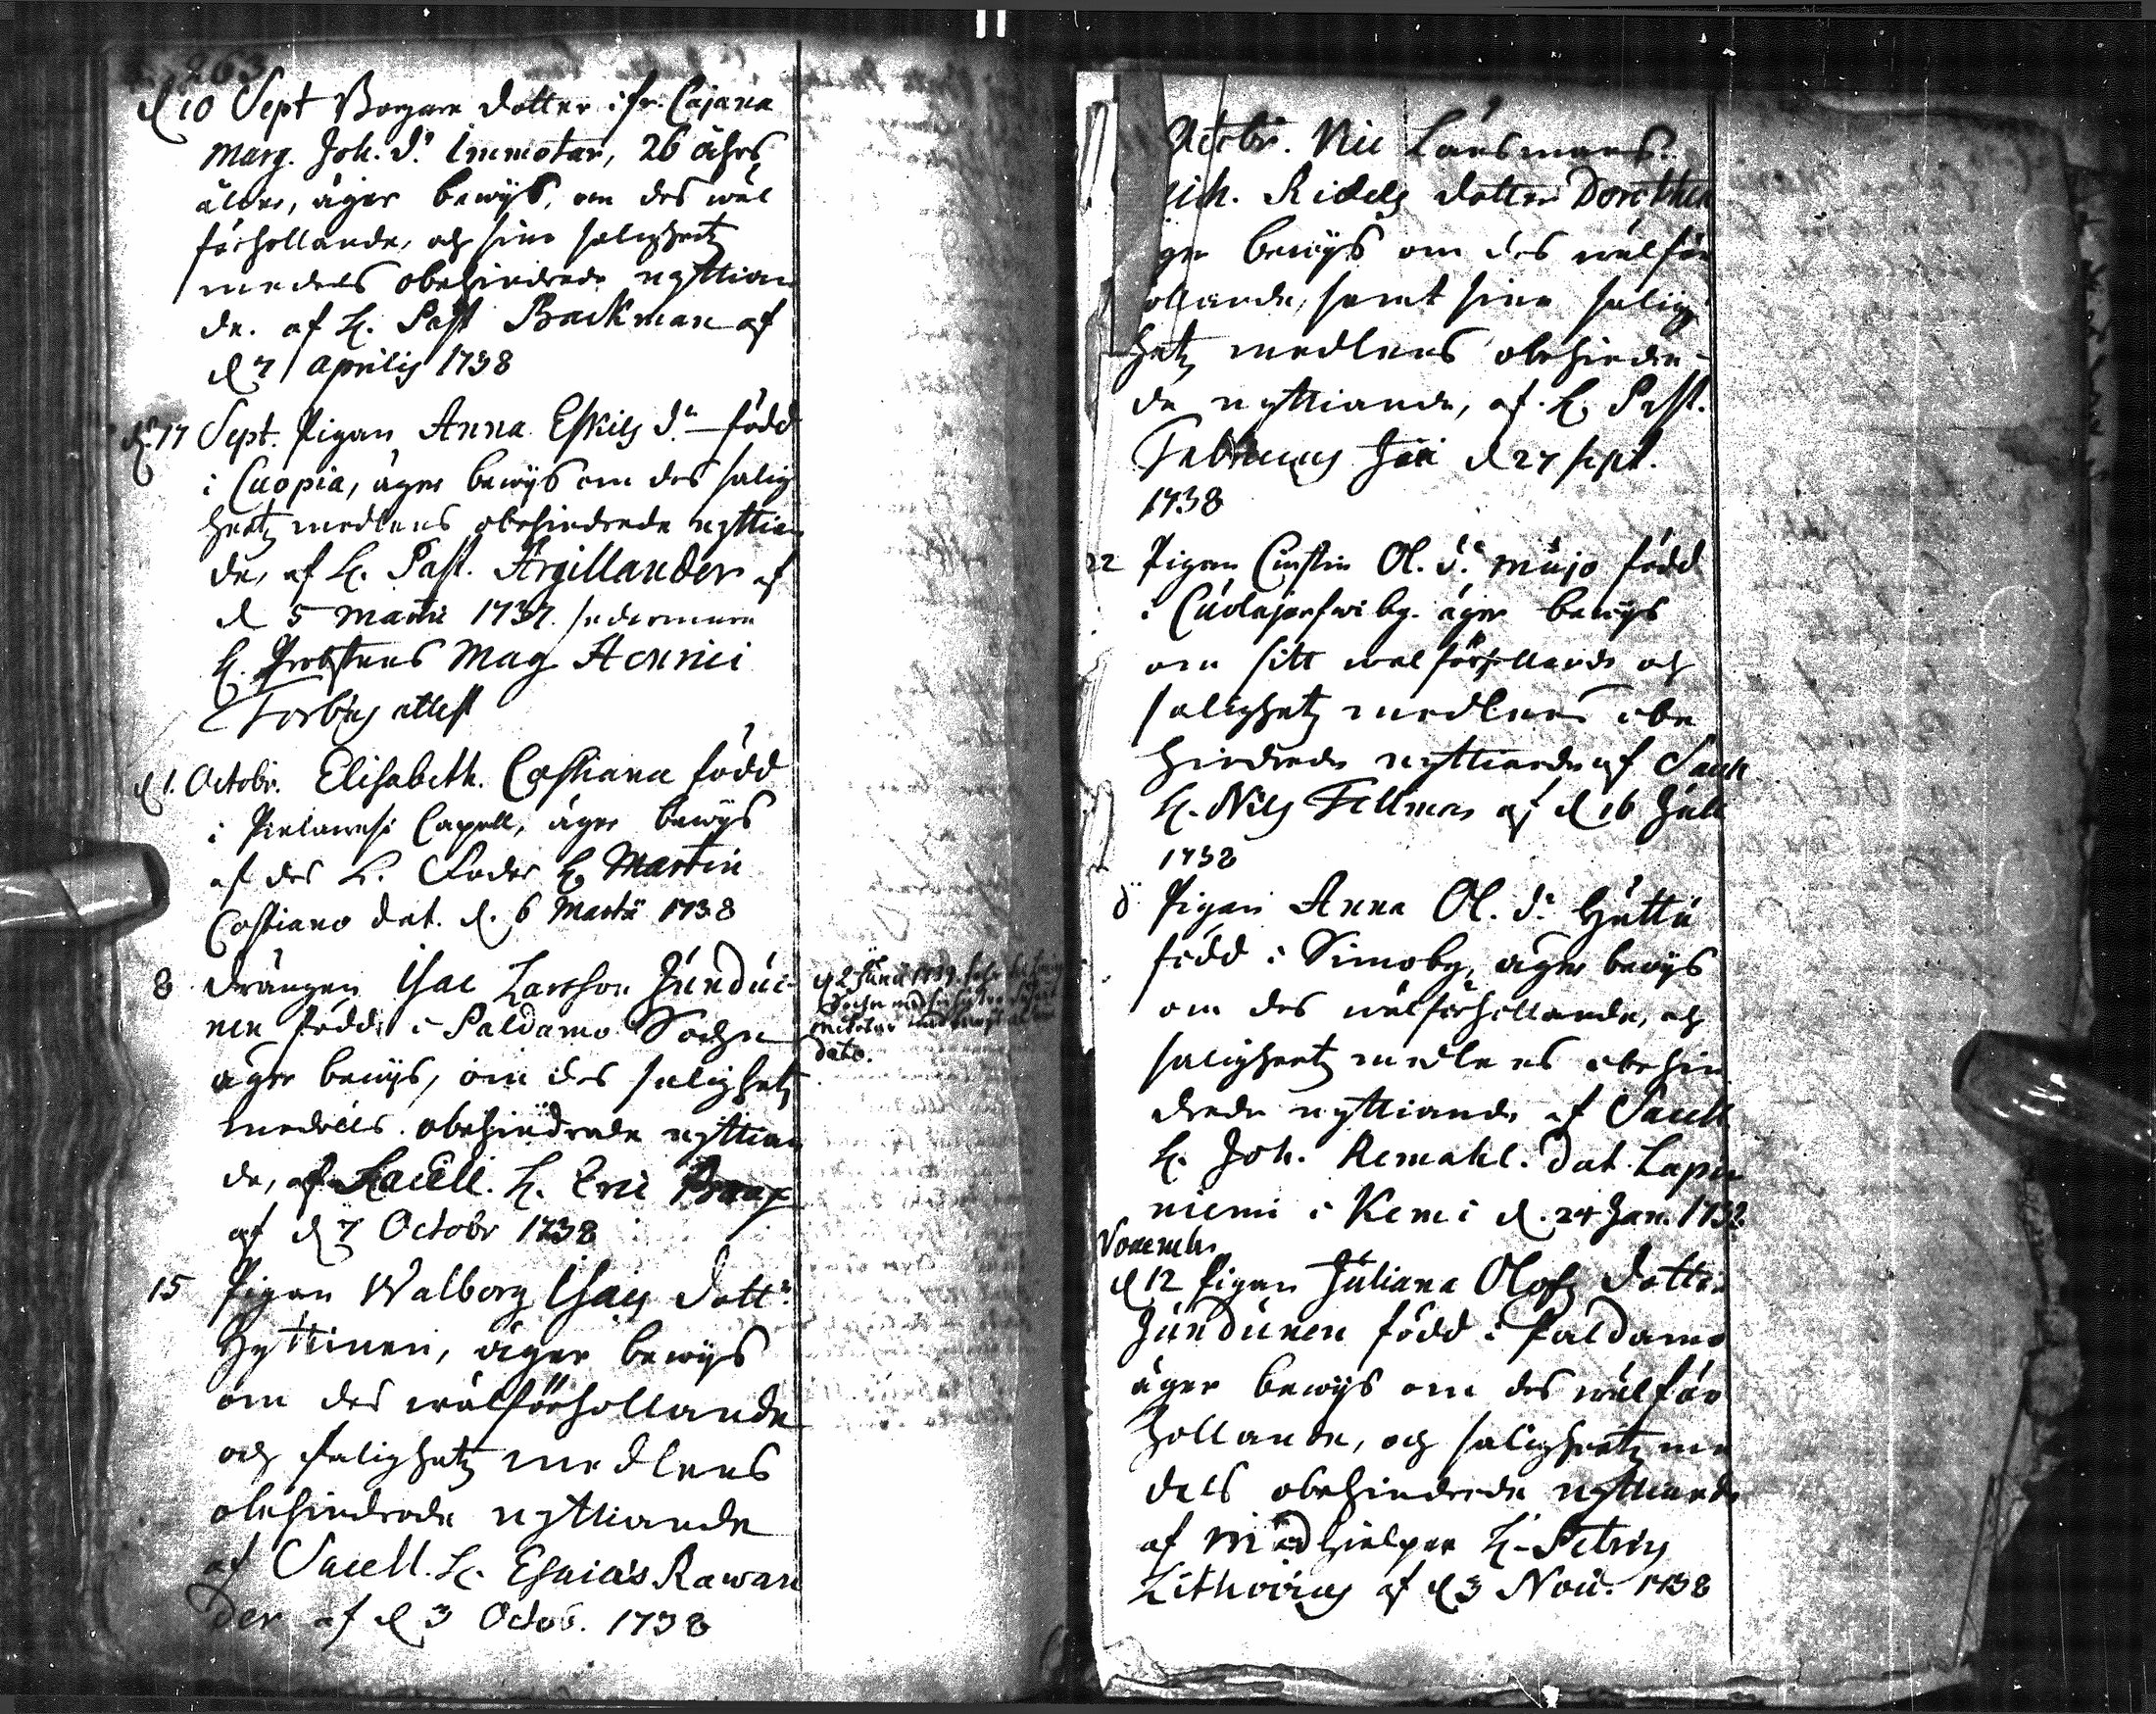 263
d 10 Sept Borgare dotter ifr. Cajana
Marg. Joh. d:r Immotar, 26 åhrs
ålder, äger bewijs, om des wäl
förhollande, och sine salighetz
medels obehindrade nyttian
de. af H. Past Backman af
d 7 Aprilis 1738
d. 17 Sept. Pigan Anna Eskils d:r född
i Cuopia, äger bewijs om des salig
hetz medlens obehindrade nyttian
de, af H. Past. Argillander af
d 5 Martii 1737. sedermera
H. Probstens Mag Henrici
Forbus attest
d 1. Octobr. Elisabeth Castiana född
i Pielawesi Capell, äger bewijs
af des K. Fader H. Martin
Castiano dat. d. 6 Martii 1738
8 drängen Isac Larsson Jundui-
nen född i Paldamo Sochn
äger bewijs, om des salighetz
medels obehindrade nyttian
de, af Sacell. H. Eric
af d 7 Octobr 1738
d 2 Junii 1739.
Sochn med
dato.
15 Pigan Walborg Isacs dott:r
Hyttinen, äger bewijs
om des wälförhollande
och salighetz medlens
obehindrade nyttiande
af Sacell. H. Esaias Rawan
der af d 3 Octob. 1738
Octobr. Nic Länsmans
Ridels dotter Dorothea
äger bewijs om des wälför
hollande, samt sine salig
hetz medlens obehindra-
de nyttiande, af H. Past.
Jöå d 27 sept.
1738
22 Pigan Cirstin Ol. d:r Mujo född
i by. äger bewijs
om sitt wälförhollande och
salighetz medlens obe
hindrade nyttiande af Sacell
H. Nils Fellman af d 16 Juli
1738
d Pigan Anna Ol. d:r Huttu
född i Simoby, äger bewijs
om des wälförhollande, och
salighetz medlens obehin
drade nyttiande af Sacell
H. Joh. Remahl. dat. Lapa
niemi i Kemi d. 24 Jan. 1738
Novembr
d 12 Pigan Juliana Olofs dotter
Jundunen född i Paldamo
äger bewijs om des wälför
hollande, och salighetz me
dels obehindrade nyttiande
af Medhielpar H. Petrus
Lithovius af d 3 Nov. 1738